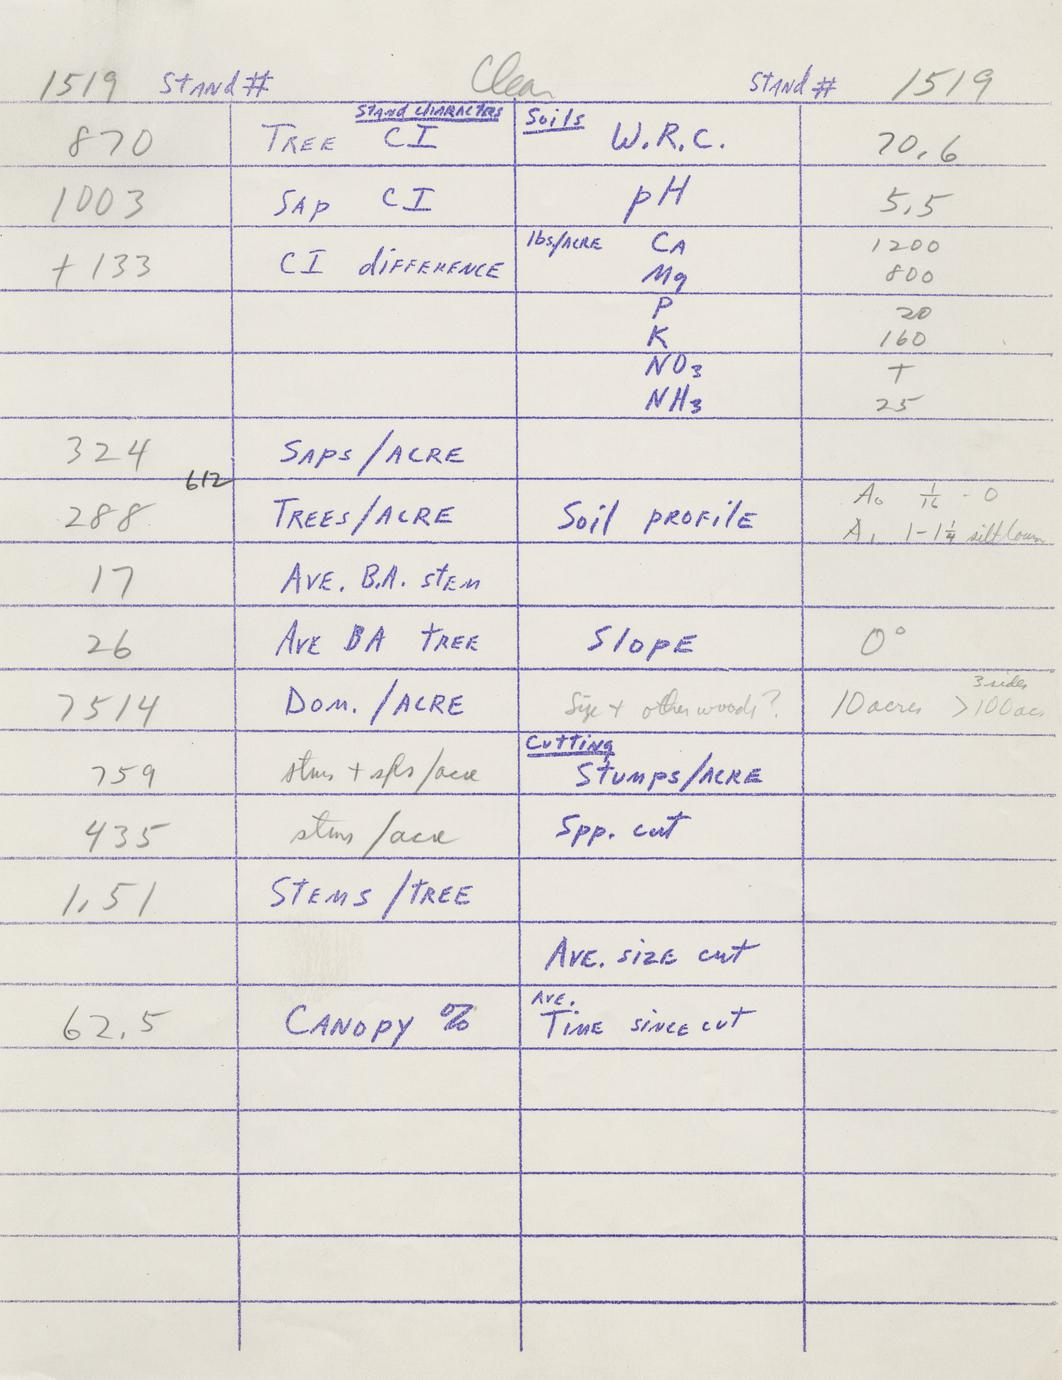 1519 Stand # Clean Stand # 1519
Stand Characters Soils
870 Tree CI W.R.C. 70.6
1003 Sap CI pH 5.5
+133 CI difference lbs/Acre Ca 1200
Mg 800
P 20
K 160
NO3 T
NH3 25
324 Saps/Acre
612
288 Trees/Acre Soil profile A0 1/16 - 0
A1 1-1 1/4 silt loam
17 Ave. B.A. stem
26 Ave BA tree Slope 0°
7514 Dom./Acre Size + other woods? 10 acres 3 sides >100 acs
Cutting
759 stms + sps/acre Stumps/Acre
435 stms/acre Spp. cut
1.51 Stems/tree
Ave. size cut
62.5 Canopy % Ave. Time since cut